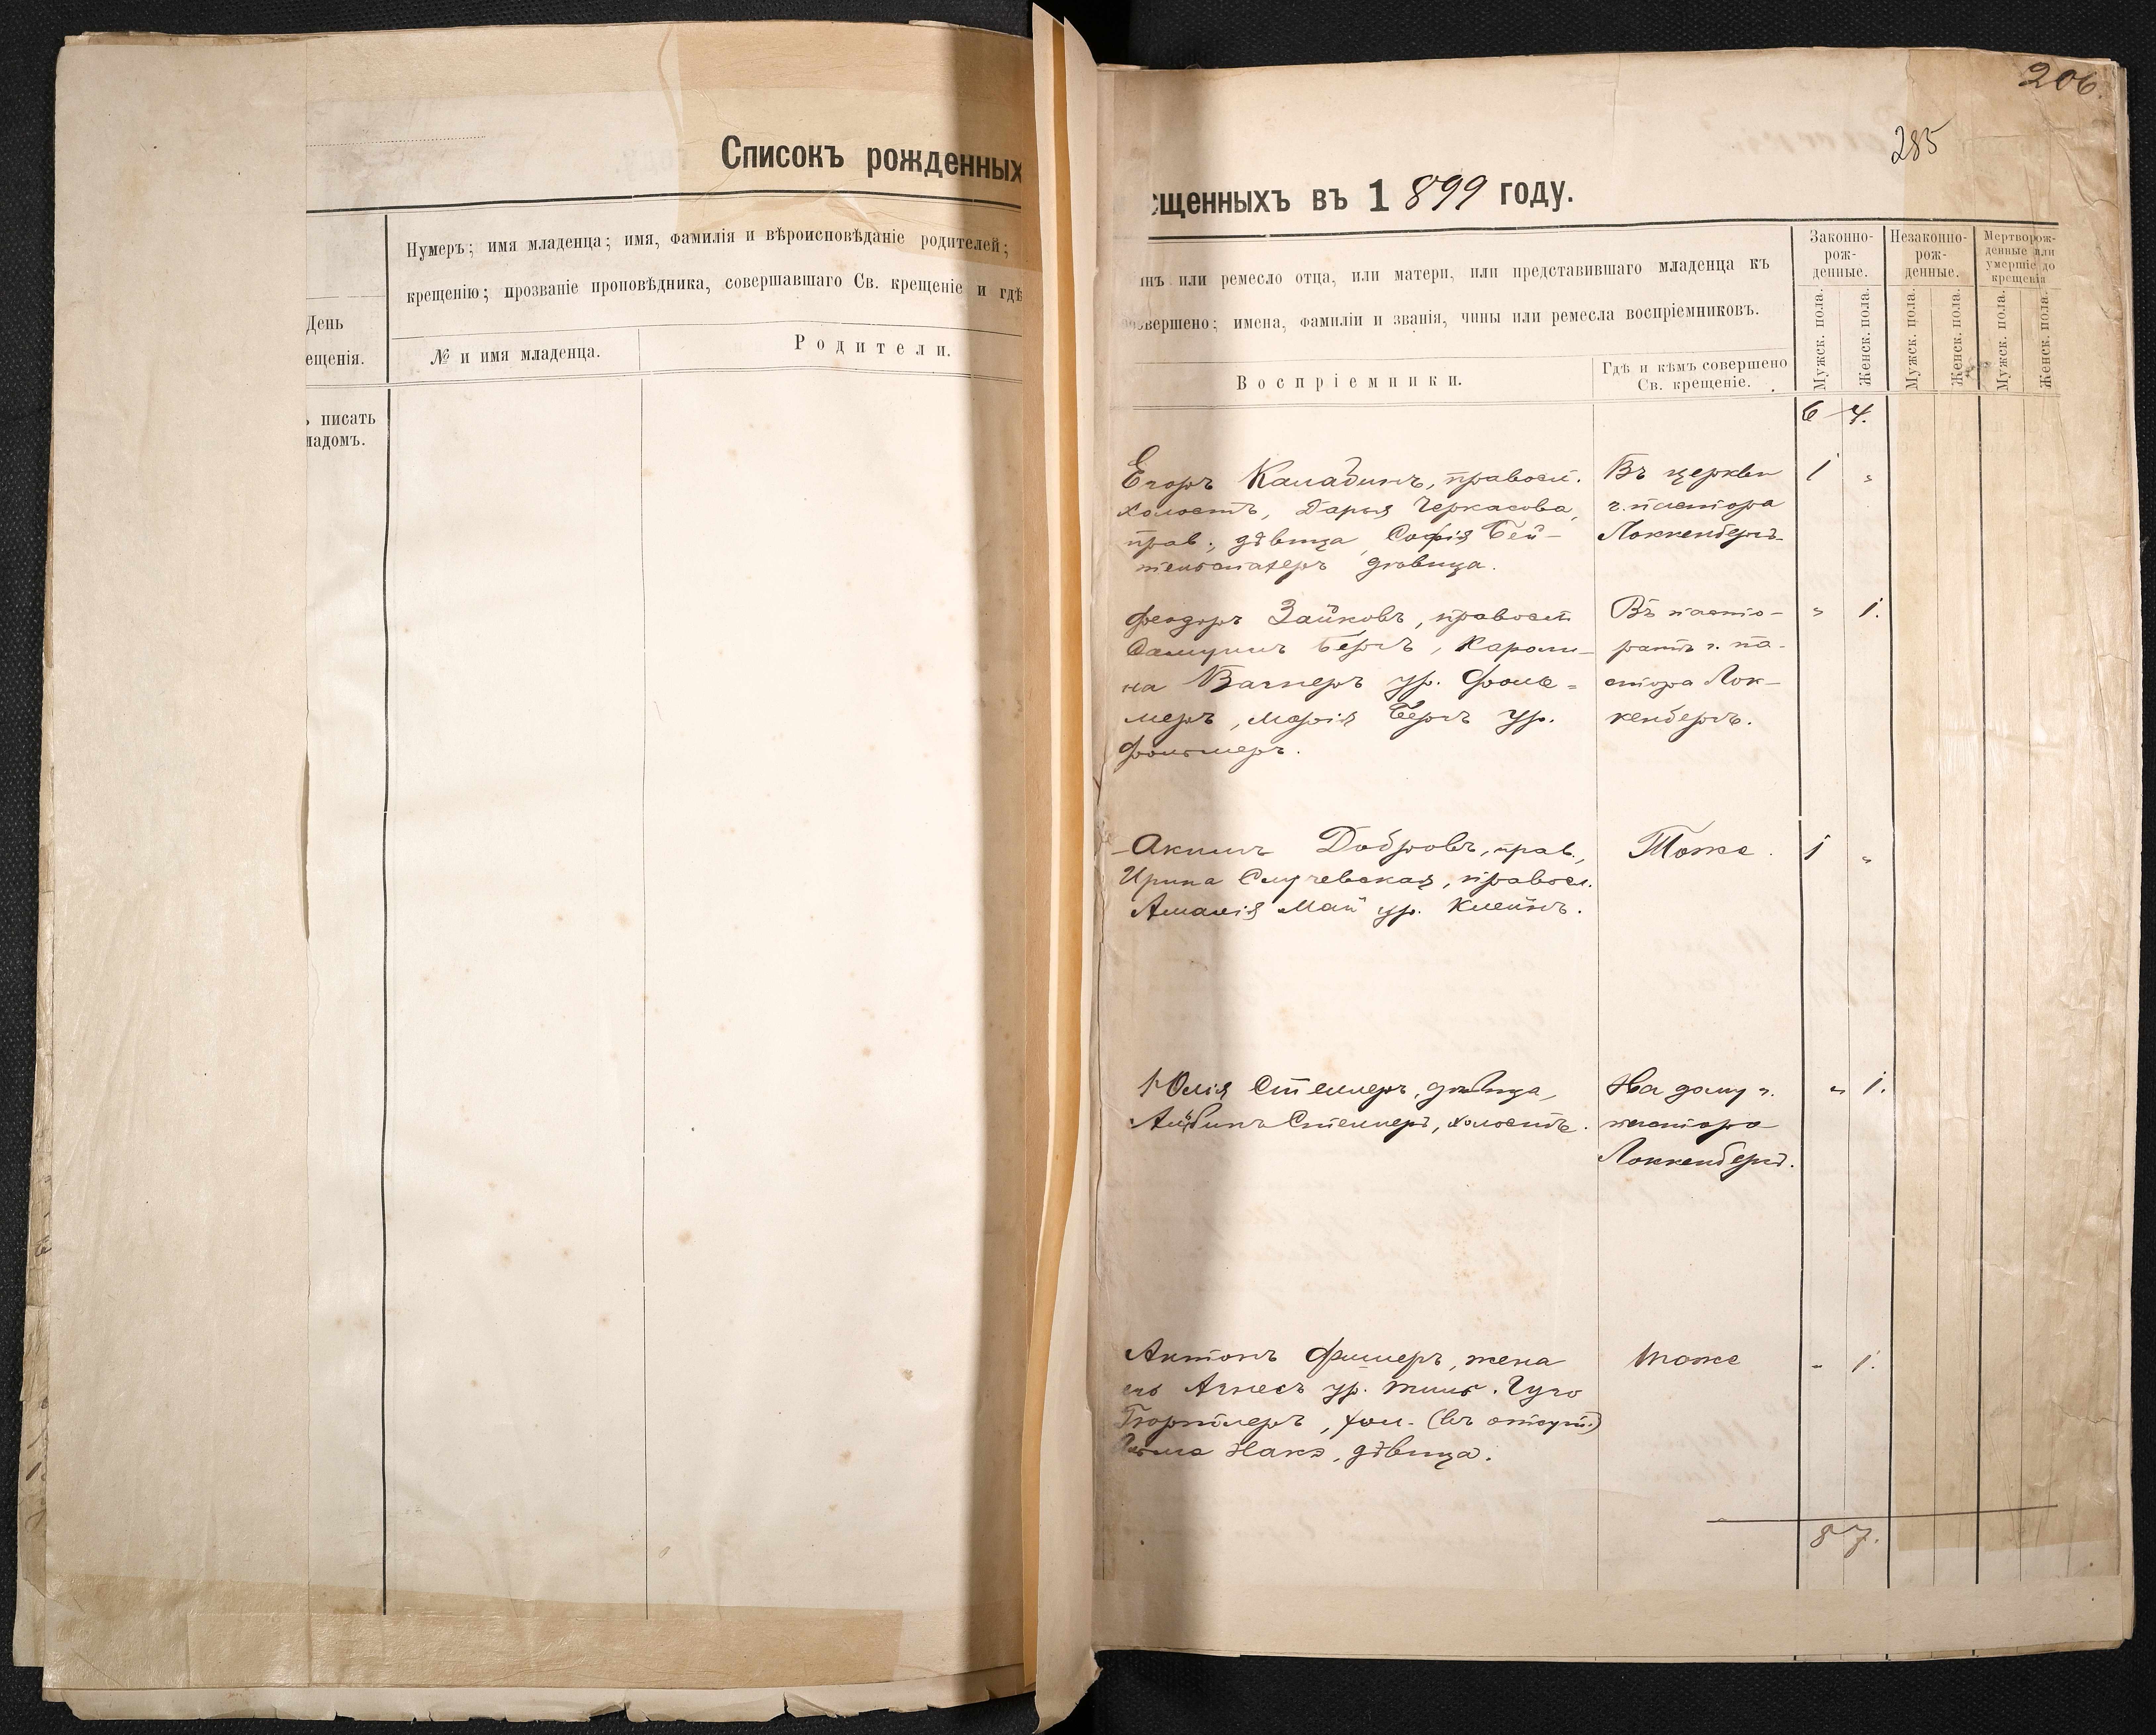 Списокъ рожденных
День
ещенія.
ь писать
ладомъ.
Нумеръ; имя младенца; имя, фамилія и вѣроисповѣданіе родителей;
крещенію; прозваніе проповѣдника, совершавшаго Св. крещеніе и гдѣ
№ и имя младенца.
Родители.
206.
285
ещенныхъ въ 1899 году.
инъ или ремесло отца, или матери, или представившаго младенца къ
совершено; имена, фамиліи и званія, чины или ремесла воспріемниковъ.
Воспріемники.
Гдѣ и кѣмъ совершено
Св. крещеніе.
Законно-
рож-
денные.
Незаконно-
рож-
денные.
Мертворож-
денные или
умершіе до
крещенія
Мужск. пола.
Женск. пола.
Мужск. пола.
Женск. пола.
Мужск. пола.
Женск. пола.
6 4.
Егоръ Каладинъ, правосл.
холостъ, Дарья Черкасова,
прав., дѣвица, Софія Бей-
дѣвица.
Въ церкви
г. пастора
Локкенбергъ
1 "
Феодоръ Зайковъ, правосл
Самуилъ Бергъ, Кароли-
на Вагнеръ ур. Фоль-
меръ, Марія Бергъ ур.
Фольмеръ.
Въ пасто-
ратѣ г. па-
стора Лок-
кенбергъ.
" 1.
Акимъ Добровъ, прав.,
Ирина Случевская, правосл.
Амалія Май ур. Клейнъ.
Тоже.
1 "
Юлія Стеллеръ, дѣвица,
Альбинъ Стеллеръ, холостъ.
На дому г.
пастора
Локкенбергъ.
" 1.
Антонъ Фишеръ, жена
его Агнесъ ур. Тиль. Гуго
хол. (въ отсут.)
Накэ, дѣвица.
тоже
" 1.
8 7.